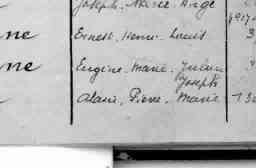 Joseph, Marie, Ange
ne Ernest, Henri, Louis 3
ne Eugène, Marie, Julien
Joseph
Alain, Pierre, Marie 130